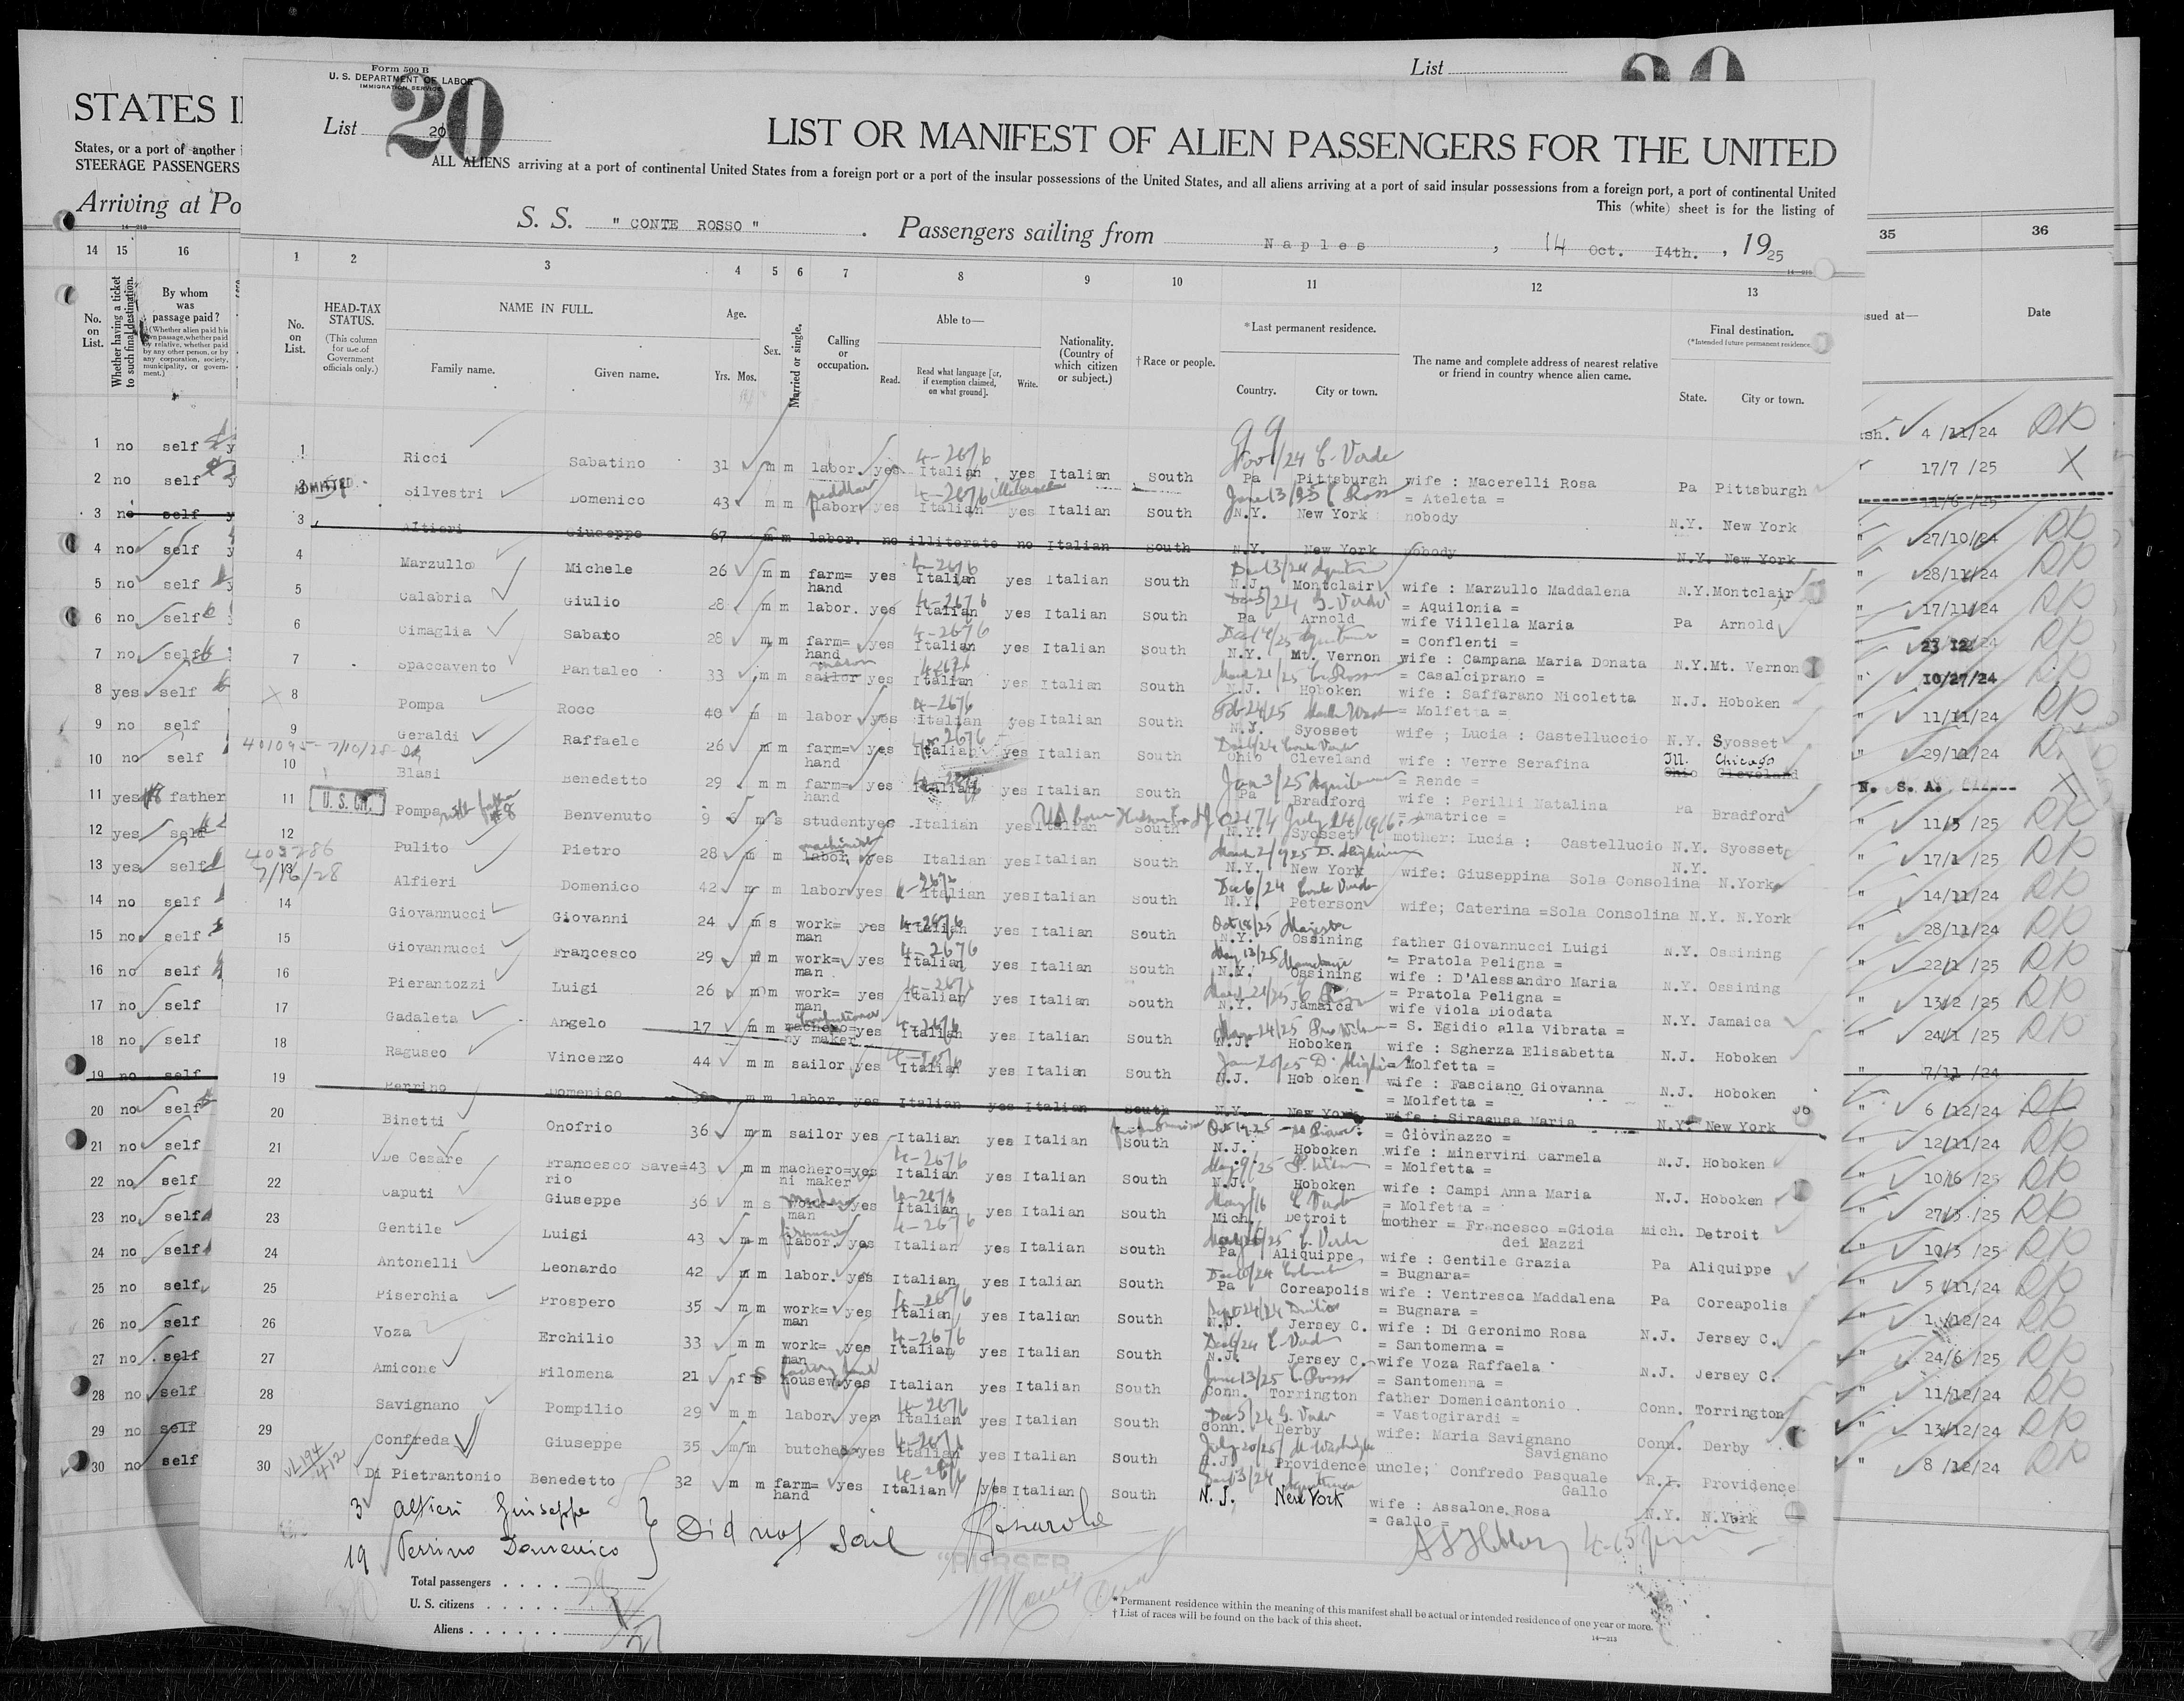 Form 500 B
U. S. DEPARTMENT OF LABOR
IMMIGRATION SERVICE
List 20
20
List
STATES
LIST OR MANIFEST OF ALIEN PASSENGERS FOR THE UNITED
States, or a port of another
STEERAGE PASSENGERS
ALL ALIENS arriving at a port of continental United States from a foreign port or a port of the insular possessions of the United States, and all aliens arriving at a port of said insular possessions from a foreign port, a port of continental United
This (white) sheet is for the listing of
Arriving at Po
S. S. " CONTE ROSSO " . Passengers sailing from Naples , 14 Oct. I4th. , 1925
14 15 16 1 2 3 4 5 6 7 8 9 10 11 12 13 35 36
No. on List.
Whether having a ticket to such final destination.
By whom was passage paid?
(Whether alien paid his own passage, whether paid by relative, whether paid by any other person, or by any corporation, society, municipality, or government.)
No. on List.
HEAD-TAX STATUS.
(This column for use of Government officials only.)
NAME IN FULL.
Family name. Given name.
Age. Yrs. Mos.
Sex.
Married or single.
Calling or occupation.
Able to—
Read. Read what language [or, if exemption claimed, on what ground]. Write.
Nationality. (Country of which citizen or subject.)
†Race or people.
*Last permanent residence.
Country. City or town.
The name and complete address of nearest relative or friend in country whence alien came.
Final destination.
(*Intended future permanent residence.)
State. City or town.
sued at— Date
1 no self 1 Ricci Sabatino 31 m m labor. yes Italian yes Italian South Pa Pittsburgh wife : Macerelli Rosa = Ateleta = Pa Pittsburgh 4 /11/24
2 no self ADMITTED Silvestri Domenico 43 m m labor yes Italian yes Italian South N.Y. New York nobody N.Y. New York 17/7 /25
3 no self 3 Altieri Giuseppe 67 m m labor. no illiterate no Italian South N.Y. New York nobody N.Y. New York 11/6 /25
4 no self 4 Marzullo Michele 26 m m farm= hand yes Italian yes Italian South N.J. Montclair wife : Marzullo Maddalena = Aquilonia = N.Y. Montclair 27/10/24
5 no self 5 Calabria Giulio 28 m m labor. yes Italian yes Italian South Pa Arnold wife Villella Maria = Conflenti = Pa Arnold 28/11/24
6 no self 6 Cimaglia Sabato 28 m m farm= hand yes Italian yes Italian South N.Y. Mt. Vernon wife : Campana Maria Donata = Casalciprano = N.Y. Mt. Vernon 17/11/24
7 no self 7 Spaccavento Pantaleo 33 m m sailor mason yes Italian yes Italian South N.J. Hoboken wife : Saffarano Nicoletta = Molfetta = N.J. Hoboken 23 12/24
8 yes self 8 Pompa Rocc 40 m m labor yes Italian yes Italian South N.J. Syosset wife ; Lucia : Castelluccio N.Y. Syosset 10/27/24
9 no self 9 Geraldi Raffaele 26 m m farm= hand yes Italian yes Italian South Ohio Cleveland wife : Verre Serafina = Rende = Ohio Cleveland Ill. Chicago 11/11/24
401095-7/10/28
10 no self 10 Blasi Benedetto 29 m m farm= hand yes Italian yes Italian South Pa Bradford wife : Perilli Natalina = Amatrice = Pa Bradford 29/11/24
11 yes father 11 U. S. CIT. Pompa with father #8 Benvenuto 9 m s student yes Italian yes Italian South N.Y. Syosset mother: Lucia : Castellucio N.Y. Syosset N. S. A.
12 yes self 12 Pulito Pietro 28 m m labor machinist yes Italian yes Italian South N.Y. New York wife: Giuseppina Sola Consolina N.Y. N.York 11/5 /25
403786
7/16/28
13 yes self 13 Alfieri Domenico 42 m m labor yes Italian yes Italian South N.Y. Peterson wife; Caterina =Sola Consolina N.Y. N.York 17/1 /25
14 no self 14 Giovannucci Giovanni 24 m s work= man yes Italian yes Italian South N.Y. Ossining father Giovannucci Luigi = Pratola Peligna = N.Y. Ossining 14/11/24
15 no self 15 Giovannucci Francesco 29 m m work= man yes Italian yes Italian South N.Y. Ossining wife : D'Alessandro Maria = Pratola Peligna = N.Y. Ossining 28/11/24
16 no self 16 Pierantozzi Luigi 26 m m work= man yes Italian yes Italian South N.Y. Jamaica wife Viola Diodata = S. Egidio alla Vibrata = N.Y. Jamaica 22/1 /25
17 no self 17 Gadaleta Angelo 17 m m machero= ny maker yes Italian yes Italian South N.J. Hoboken wife : Sgherza Elisabetta = Molfetta = N.J. Hoboken 13/2 /25
18 no self 18 Raguseo Vincenzo 44 m m sailor yes Italian yes Italian South N.J. Hoboken wife : Fasciano Giovanna = Molfetta = N.J. Hoboken 24/1 /25
19 no self 19 Perrino Domenico m m labor. yes Italian yes Italian South N.Y. New York wife : Siracusa Maria = Giovinazzo = N.Y. New York 7/11 /24
20 no self 20 Binetti Onofrio 36 m m sailor yes Italian yes Italian South N.J. Hoboken wife : Minervini Carmela = Molfetta = N.J. Hoboken 6 /12/24
21 no self 21 De Cesare Francesco Save= rio 43 m m machero= ni maker yes Italian yes Italian South N.J. Hoboken wife : Campi Anna Maria = Molfetta = N.J. Hoboken 12/11/24
22 no self 22 Caputi Giuseppe 36 m s work= man yes Italian yes Italian South Mich. Detroit mother = Francesco =Gioia dei Mazzi Mich. Detroit 10/6 /25
23 no self 23 Gentile Luigi 43 m m labor. fireman yes Italian yes Italian South Pa Aliquippe wife : Gentile Grazia = Bugnara= Pa Aliquippe 27/3 /25
24 no self 24 Antonelli Leonardo 42 m m labor. yes Italian yes Italian South Pa Coreapolis wife : Ventresca Maddalena = Bugnara = Pa Coreapolis 10/3 /25
25 no self 25 Piserchia Prospero 35 m m work= man yes Italian yes Italian South N.J. Jersey C. wife : Di Geronimo Rosa = Santomenna = N.J. Jersey C. 5 /11/24
26 no self 26 Voza Erchilio 33 m m work= man yes Italian yes Italian South N.J. Jersey C. wife Voza Raffaela = Santomenna = N.J. Jersey C. 1 /12/24
27 no self 27 Amicone Filomena 21 f s housew factory hand yes Italian yes Italian South Conn. Torrington father Domenicantonio = Vastogirardi = Conn. Torrington 24/6 /25
28 no self 28 Savignano Pompilio 29 m m labor yes Italian yes Italian South Conn. Derby wife: Maria Savignano Savignano Conn. Derby 11/12/24
29 no self 29 Confreda Giuseppe 35 m m butcher yes Italian yes Italian South R.I. Providence uncle; Confredo Pasquale Gallo R.I. Providence 13/12/24
30 no self 30 Di Pietrantonio Benedetto 32 m m farm= hand yes Italian yes Italian South N.J. New York wife : Assalone Rosa = Gallo = N.Y. N.York 8 /12/24
3 Alfieri Giuseppe
19 Perrino Domenico
Did not sail
"PURSER
Total passengers
U. S. citizens
Aliens
* Permanent residence within the meaning of this manifest shall be actual or intended residence of one year or more.
† List of races will be found on the back of this sheet.
14—213